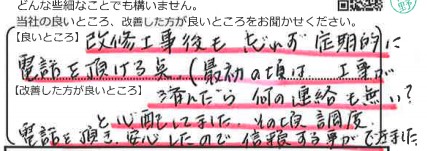 どんな些細なことでも構いません。
当社の良いところ、改善した方が良いところをお聞かせください。
【良いところ】改修工事後も忘れず定期的に
電話を頂ける点(最初の頃は 工事が
【改善した方が良いところ】済んだら何の連絡も無い?
と心配してました。その後調度
電話を頂き、安心したので信頼する事ができました